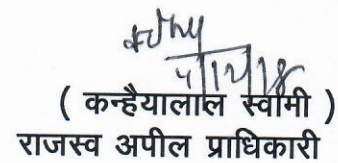 4/12/18
( कन्हैयालाल स्वामी )
राजस्व अपील प्राधिकारी